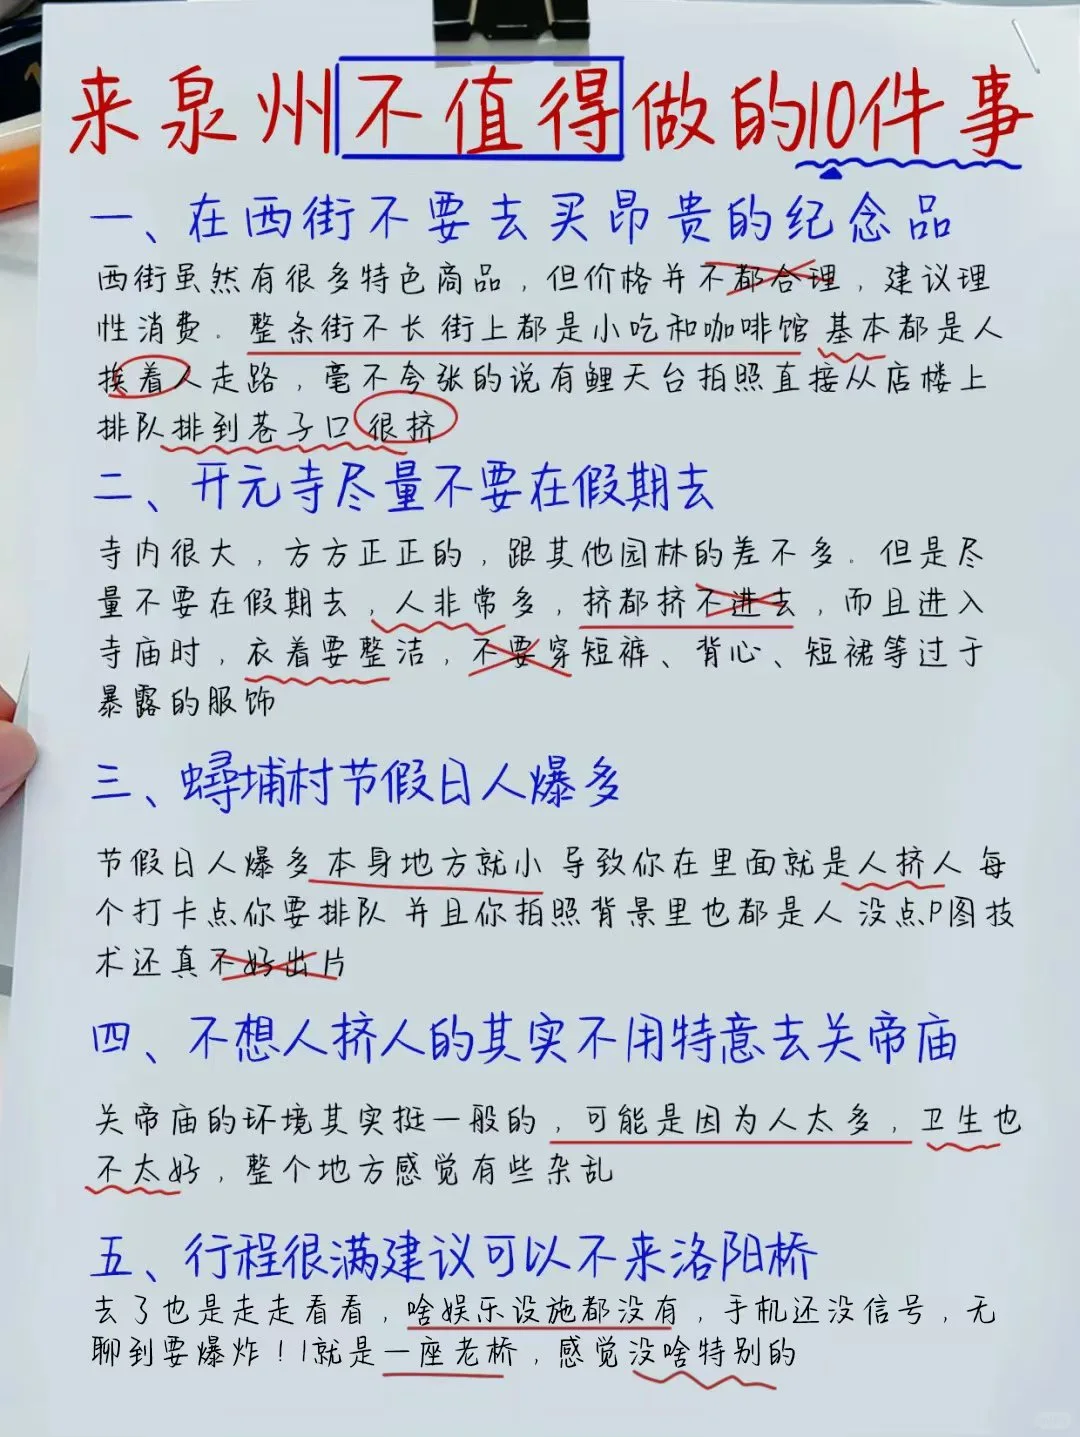 来泉州不值得做的10件事
一、在西街不要去买昂贵的纪念品
西街虽然有很多特色商品，但价格并不都合理，建议理
性消费．整条街不长 街上都是小吃和咖啡馆 基本都是人
挨着人走路，毫不夸张的说有鲤天台拍照直接从店楼上
排队排到巷子口 很挤
二、开元寺尽量不要在假期去
寺内很大，方方正正的，跟其他园林的差不多．但是尽
量不要在假期去，人非常多，挤都挤不进去，而且进入
寺庙时，衣着要整洁，不要穿短裤、背心、短裙等过于
暴露的服饰
三、蟳埔村节假日人爆多
节假日人爆多 本身地方就小 导致你在里面就是人挤人 每
个打卡点你要排队 并且你拍照背景里也都是人 没点P图技
术还真不好出片
四、不想人挤人的其实不用特意去关帝庙
关帝庙的环境其实挺一般的，可能是因为人太多，卫生也
不太好，整个地方感觉有些杂乱
五、行程很满建议可以不来洛阳桥
去了也是走走看看，啥娱乐设施都没有，手机还没信号，无
聊到要爆炸！！就是一座老桥，感觉没啥特别的